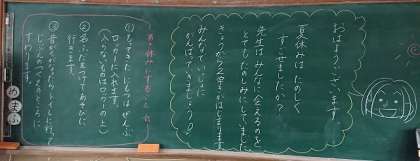 おはようございます。
夏休みは たのしく
すごせましたか？
先生は みんなに会えるのを
とてもたのしみにしてました。
きょうから2学きがはじまります。
みんなでいっしょに
がんばっていきましょう！
①もってきたにもつを ぜんぶ
ロッカーに入れます。
入らないものはロッカーの上
②名ふだをつけて あそびに
行きます。
③音がなったらトイレに行って
じぶんのせきのところに
すわります。
めあて